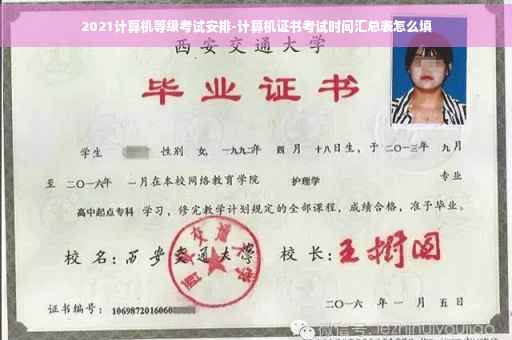 2021计算机等级考试安排-计算机证书考试时间汇总表怎么填
西安交通大学
毕业证书
学生 性别 女, 一九九二年 四月 十八日生, 于 二〇一三年 九月
至 二〇一六年 一月在本校网络教育学院 护理学 专业
高中起点专科 学习, 修完教学计划规定的全部课程, 成绩合格, 准予毕业。
校名: 西安交通大学 校长: 王树国
西安交通大学
证书编号: 1069872016060
二〇一六年一月五日
微信号: jiezhinuiyoujiao